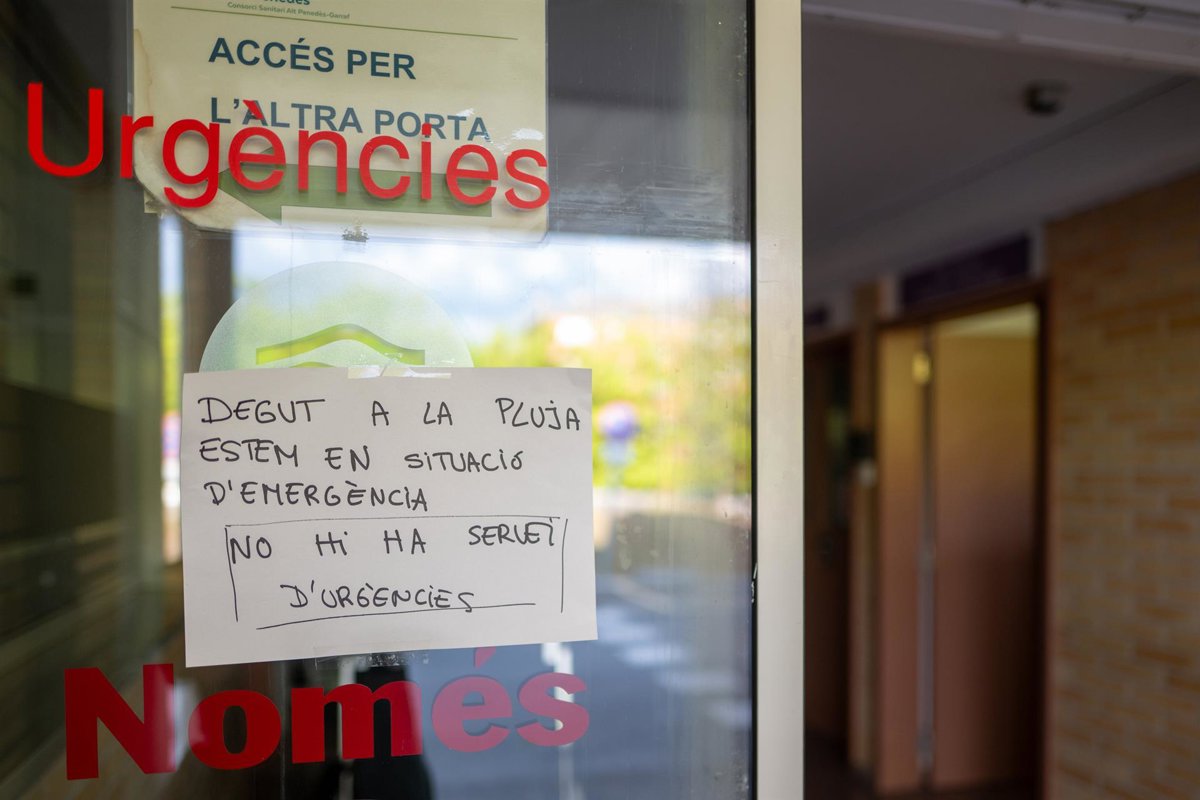 Consorci Sanitari Alt Penedès-Garraf
ACCÉS PER
L'ALTRA PORTA
Urgències
DEGUT A LA PLUJA
ESTEM EN SITUACIÓ
D'EMERGÈNCIA
NO HI HA SERVEI
D'URGÈNCIES
Només